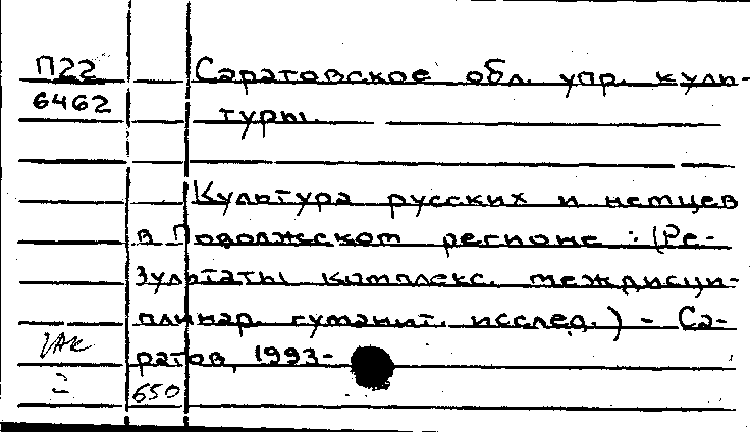 П22 Саратовское обл. упр. куль-
6462 туры.
Культура русских и немцев
в Поволжском регионе : (Ре-
зультаты комплекс. междисци-
плинар. гуманит. исслед.) - Са-
ратов, 1993-
650